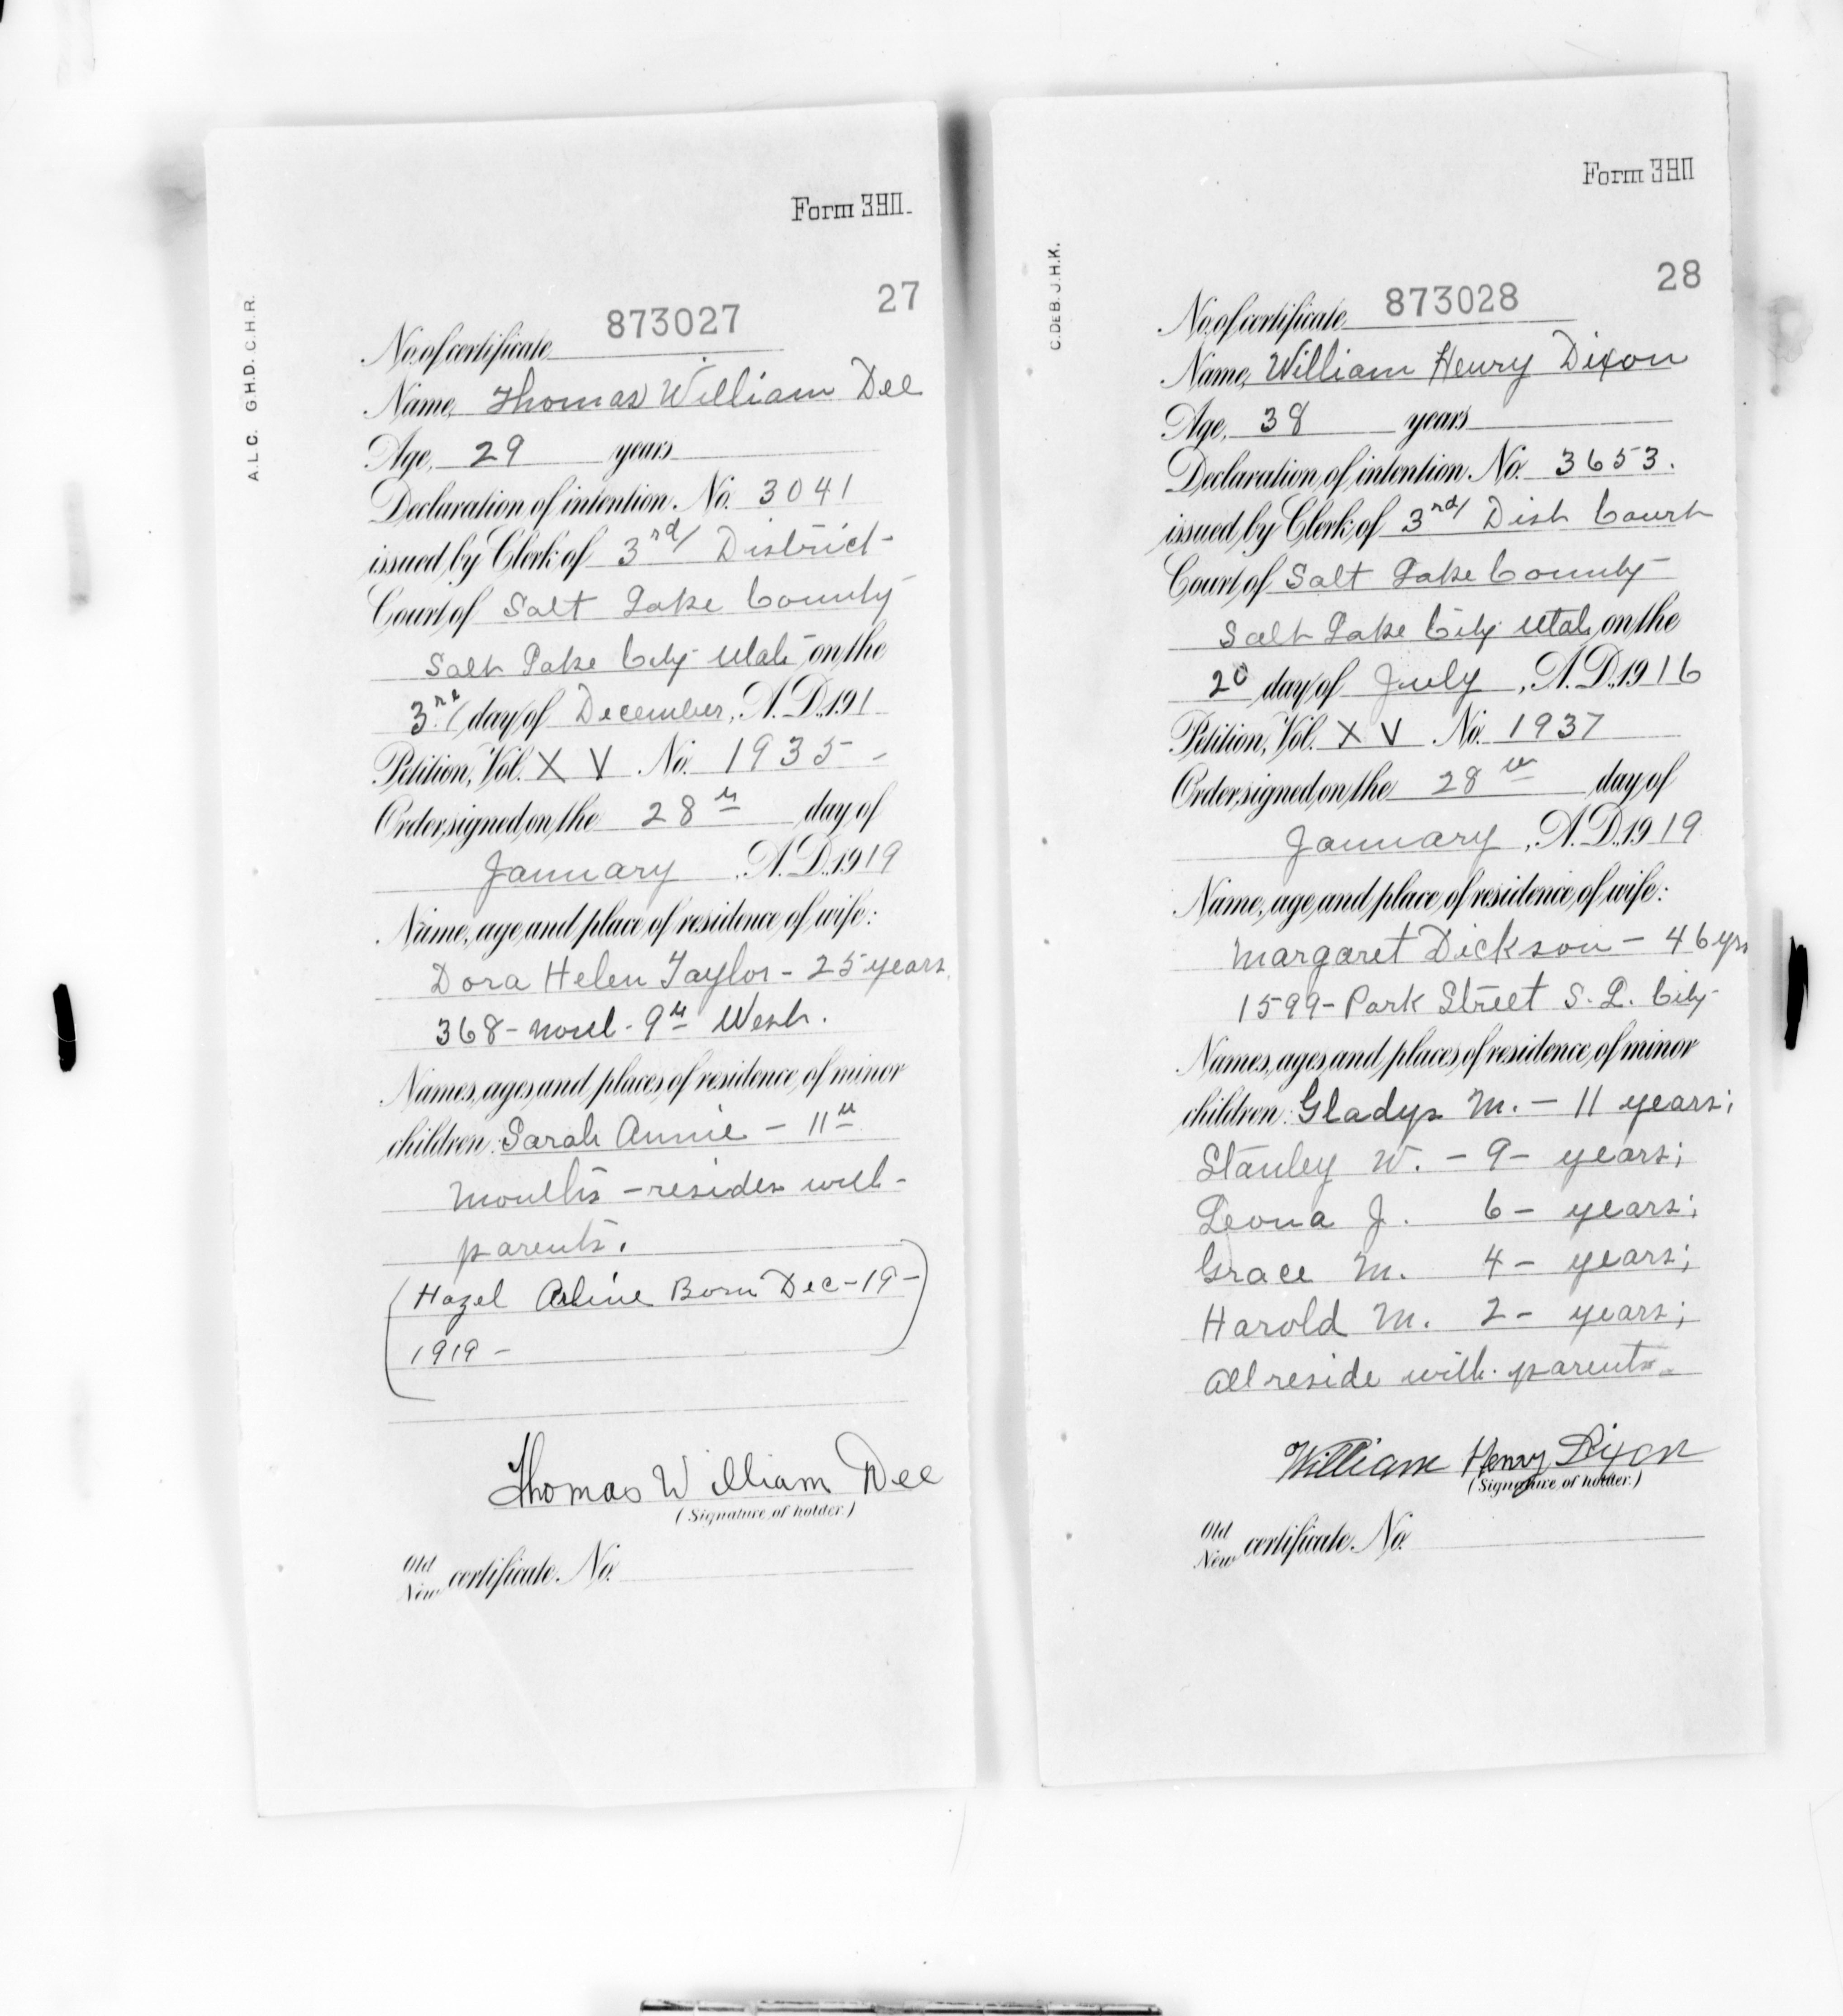 Form 390.
A.L.C. G.H.D. C.H.R.
27
No. of certificate 873027
Name, Thomas William Dee
Age, 29 years
Declaration of intention. No. 3041
issued by Clerk of 3rd District
Court of Salt Lake County
Salt Lake City Utah on the
3rd day of December, A. D. 191
Petition, Vol. XV No. 1935
Order signed on the 28th day of
January, A. D. 1919
Name, age and place of residence of wife:
Dora Helen Taylor - 25 years
368 - North - 9th West.
Names, ages and places of residence of minor
children: Sarah Annie - 11
months - resides with
parents.
(Hazel Arline Born Dec - 19 -
1919 - )
Thomas William Dee
(Signature of holder.)
Old
New certificate No.
Form 390
C.DEB. J.H.K.
28
No. of certificate 873028
Name, William Henry Dixon
Age, 38 years
Declaration of intention No. 3653.
issued by Clerk of 3rd Dist Court
Court of Salt Lake County
Salt Lake City Utah on the
20 day of July, A. D. 1916
Petition, Vol. XV No. 1937
Order signed on the 28th day of
January, A. D. 1919
Name, age and place of residence of wife:
Margaret Dickson - 46 yrs
1599 - Park Street S. L. City
Names, ages and places of residence of minor
children: Gladys M. - 11 years;
Stanley W. - 9 - years;
Leona J. 6 - years;
Grace M. 4 - years;
Harold M. 2 - years;
All reside with parents.
William Henry Dixon
(Signature of holder.)
Old
New certificate No.